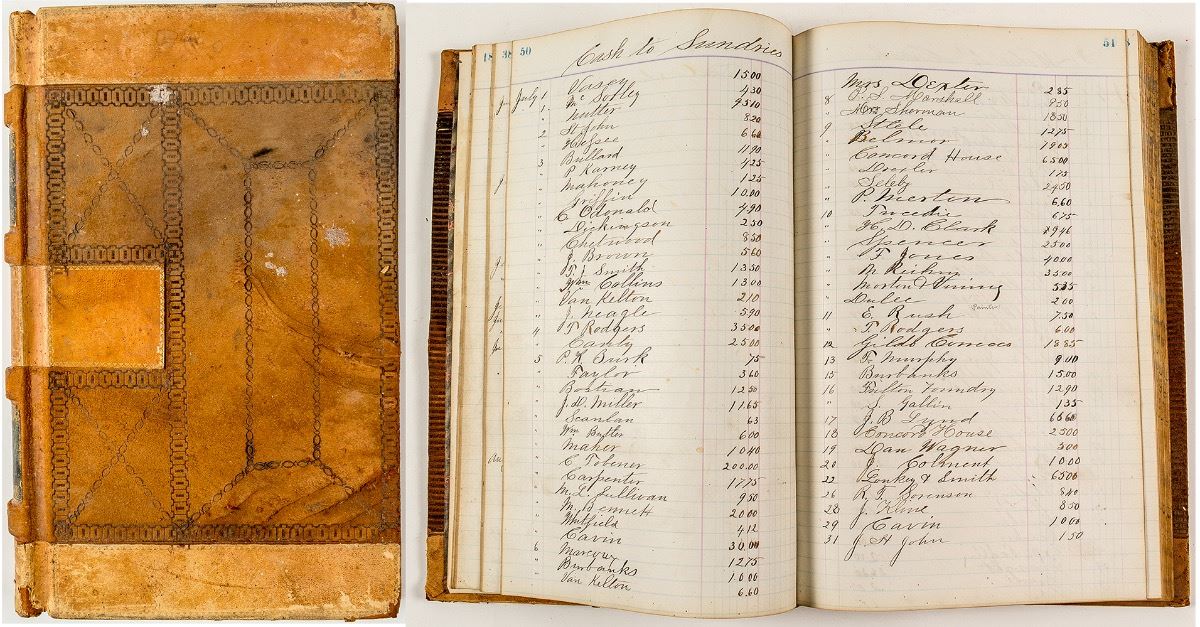 18 38 50
Cash to Sundries
July 1 Vasey 1500
" 430
1 Nutter 9310
" St John 820
2 660
" Bullard 1190
3 P. Karney 425
" Mahoney 125
" Griffin 1000
" C Odonald 490
" Dickingson 250
" Chetwood 850
" J. Brown 560
" T. J. Smith 1350
" Wm Collins 1300
" Van Kelton 210
" J. Neagle 590
4 T Rodgers 3500
" Canty 2500
5 P. K. Burk 75
" Taylor 360
" Bostran 1250
" J. D. Miller 1165
" Scanlan 63
" Wm Butler 600
" Maher 1040
" C Tobener 200.00
" Carpenter 1775
" M. L. Sullivan 950
" M. Bennett 2000
" Whitfield 412
" Cavin 30.00
6 Marcoux 1275
" Burbanks 1000
" Van Kelton 6.60
51
Mrs Dexter 285
8 Marshall 950
" Mrs Sherman 1850
9 Steele 1275
" Belmor
" Concord House 6500
" 175
" 2450
" P. Merton 6.60
10 675
" H. D. Clark 8946
" Spencer 2500
" F Jones 4000
" 3500
" Morton & Vining 535
" Dulee 200
11 E. Rush 750
" T. Rodgers 600
12 1885
13 T. Murphy 900
15 Burbanks 1500
16 Fulton Foundry 1290
" J. Gallin 135
17 J. B Lynd 6860
18 Concord House 2500
19 Dan Wagner 500
20 J. Colment 1000
22 Lonkey & Smith 6500
26 R. T. Sorenson 840
28 J. Kline 850
29 Cavin 1000
31 J. H John 150